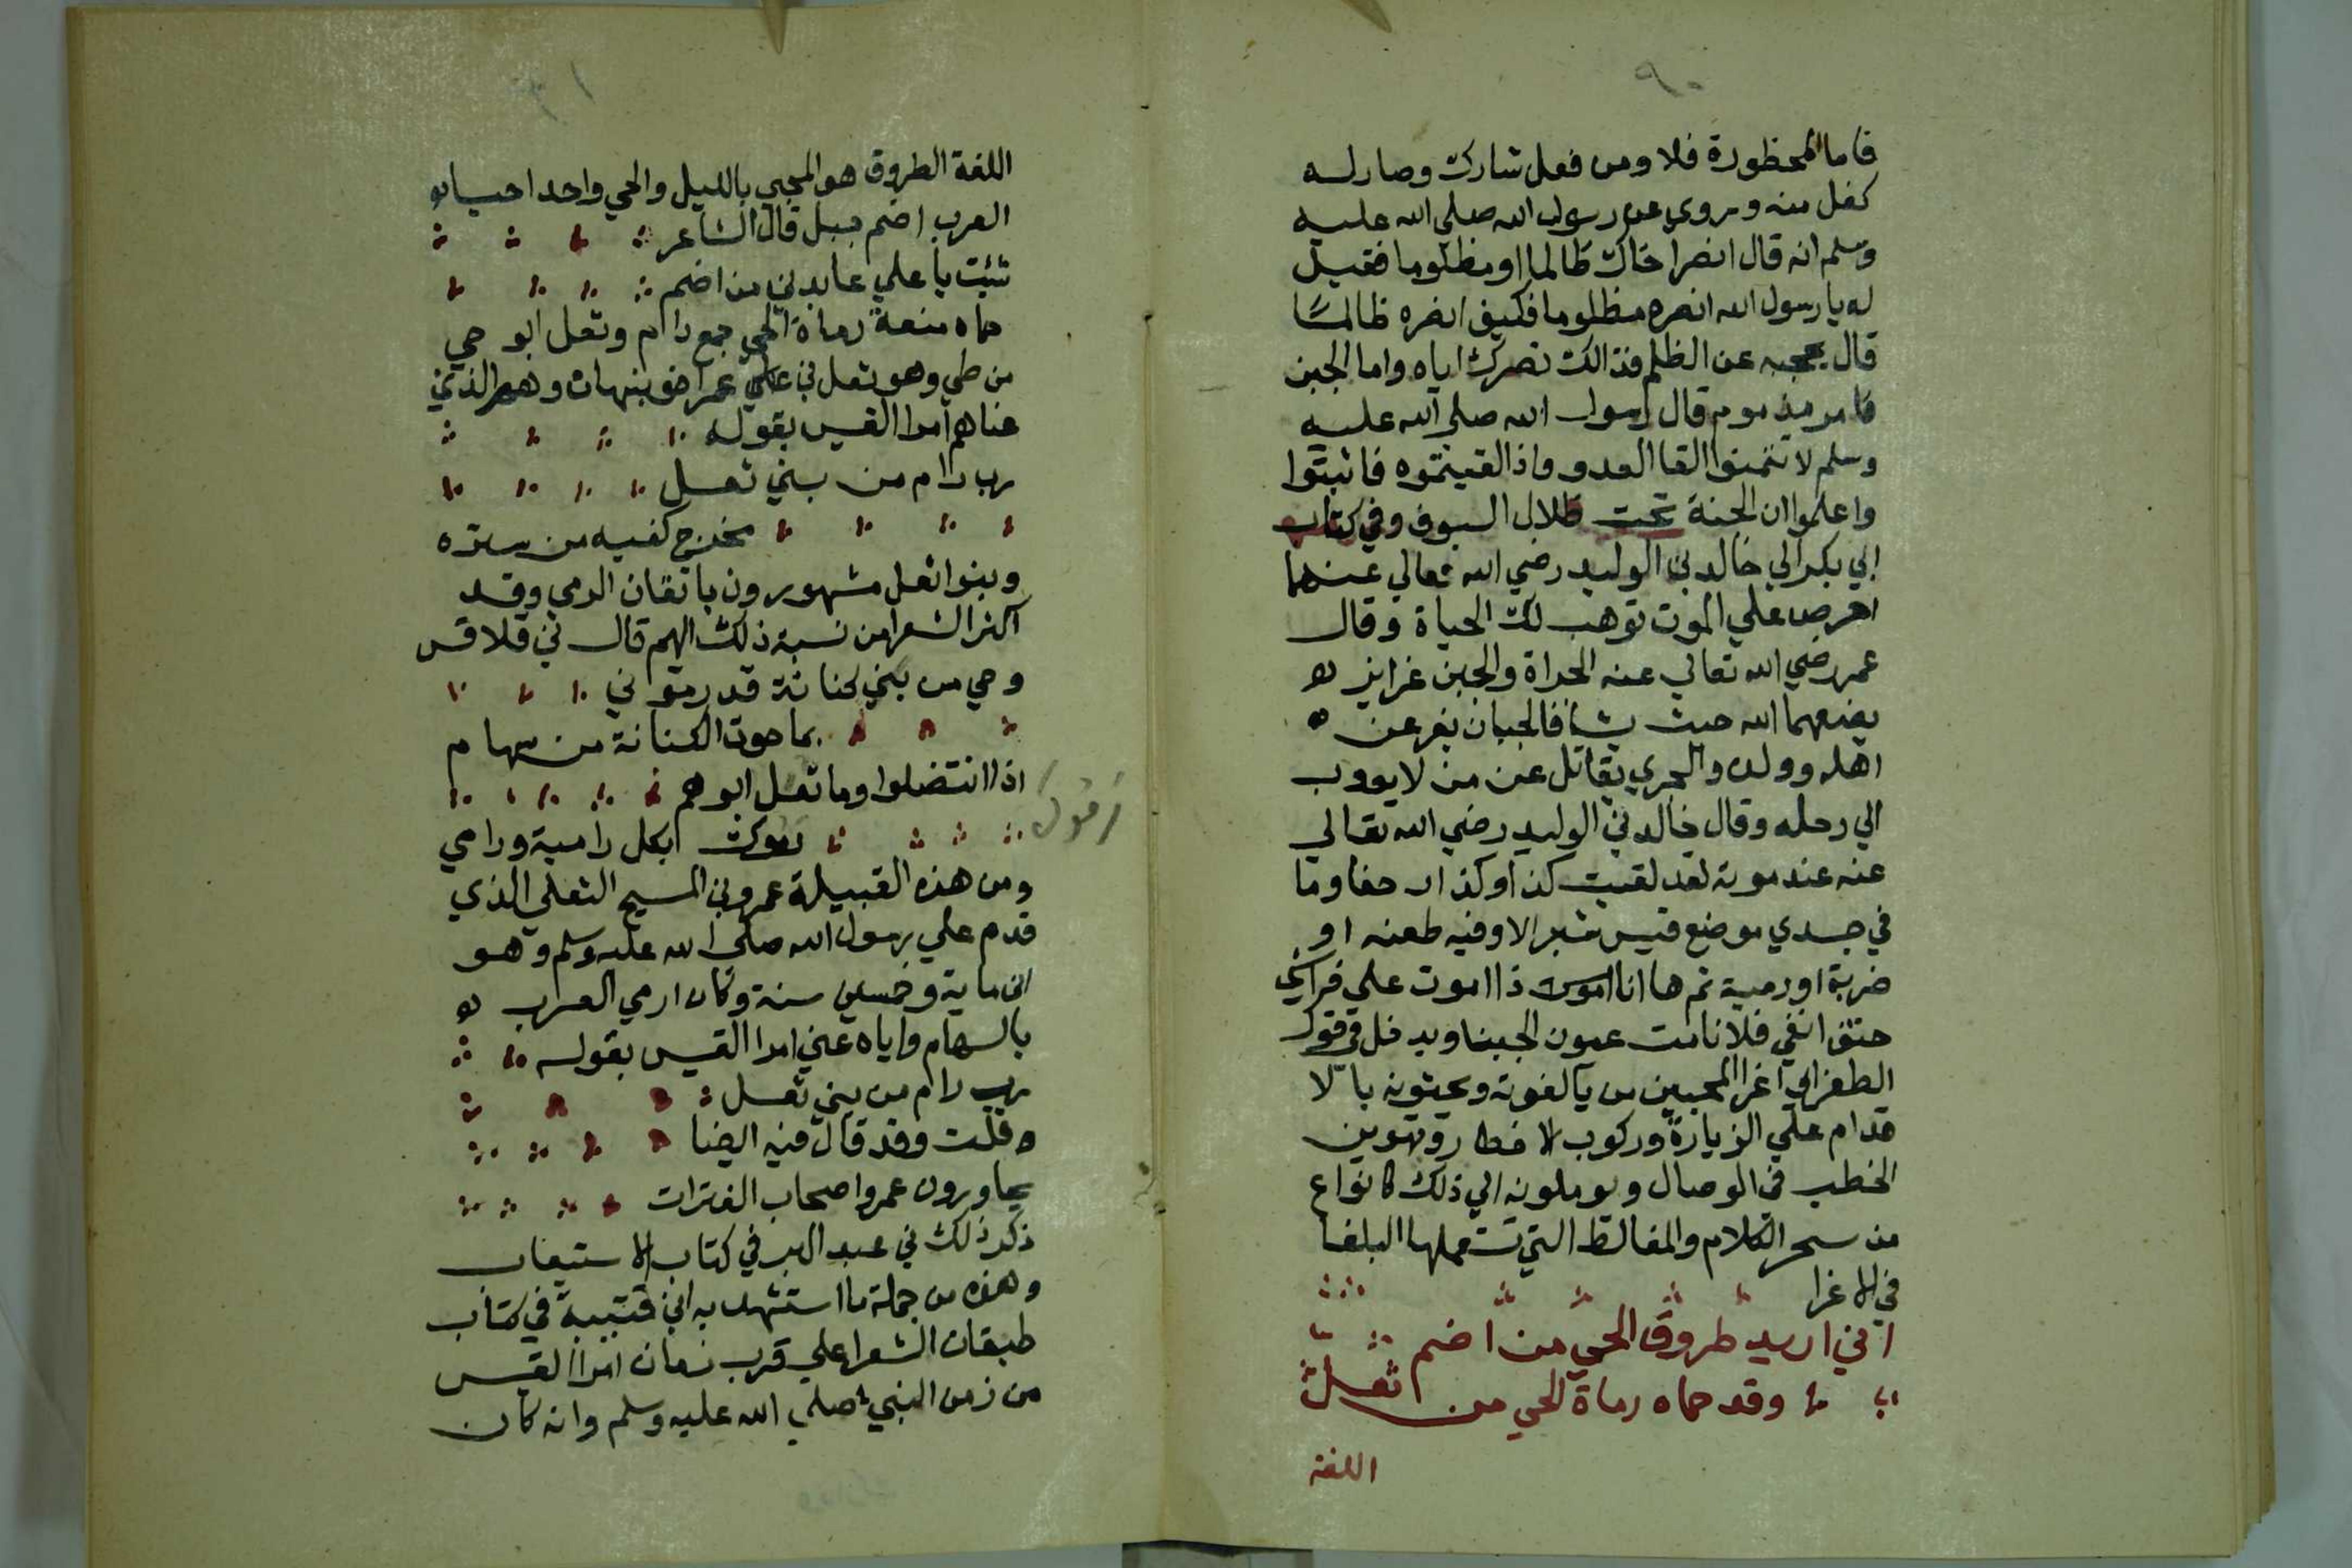 فاما المحظورة فلا ومن فعل شارك وصار له
كفل منه ويروى عن رسول الله صلي الله عليه
وسلم انه قال انصر اخاك ظالما او مظلوما فقيل
له يا رسول الله انصره مظلوما فكيف انصره ظالما
قال تحجبه عن الظلم فذالك نصرك اياه واما الجبن
فامر مذموم قال رسول الله صلي الله عليه
وسلم لا تتمنوا لقا العدو واذا لقيتموه فاثبتوا
واعلموا ان الجنة تحت ظلال السيوف وفي كتاب
ابي بكر الي خالد بن الوليد رضي الله تعالي عنهما
احرص علي الموت توهب لك الحياة وقال
عمر رضي الله تعالي عنه الجراة والجبن غرايز
يضعهما الله حيث يشا فالجبان يفر عن
اهله وولده والجري يقاتل عن من لا يووب
الي رحله وقال خالد بن الوليد رضي الله تعالي
عنه عند موته لقد لقيت كذا وكذا زحفا وما
في جسدي موضع قيس شبر الا وفيه طعنه او
ضربة او رمية ثم ها انا اموت علي فراشي
حتف انفي فلا نامت عيون الجبنا ويدخل في قول
الطغراي اغرا المحبين من يالفونه ويحثونه بالا
قدام علي الزيارة وركوب الاخطار وتهوين
الخطب في الوصال ويوملونه الي ذلك كانواع
من سحر الكلام والمغالط التي تستعملها البلغا
في الاغرا
اني اريد طروق الحي من اضم
وقد حماه رماة الحي من ثعل
اللغة
اللغة الطروق هو المجي بالليل والحي واحد احيا
العرب اضم جبل قال الشاعر
شئت با علي عابدني من اضم
حماه منعة رماة الحي جمع رام وثعل ابو حي
من طي وهو ثعل بن عمر اخو بنهان وهم الذين
عناهم امرا القيس بقوله
رب رام من بني ثعل
مخرج كفيه من ستره
وبنوا ثعل مشهورون باتقان الرمي وقد
اكثر الشعرا من نسبة ذلك اليهم قال بن قلاقس
وحي من بني كنانة قد رموني
بما حوت الكنانة من سهام
اذا انتضلوا وما ثعل ابوهم
رموك بكل رامية ورامي
ومن هذه القبيلة عمرو بن المسيح الثعلي الذي
قدم علي رسول الله صلي الله عليه وسلم وهو
ابن ماية وخمسين سنة وكان ارمي العرب
بالسهام واياه عني امرا القيس بقوله
رب رام من بني ثعل
وقلت وقد قال فيه ايضا
يحاورون عمروا صحاب الفترات
ذكر ذلك بن عبد البر في كتاب الاستيعاب
وهذه من جملة ما استشهد به ابن قتيبة في كتاب
طبقات الشعرا علي قرب زمان امرا القيس
من زمن النبي صلي الله عليه وسلم وانه كان